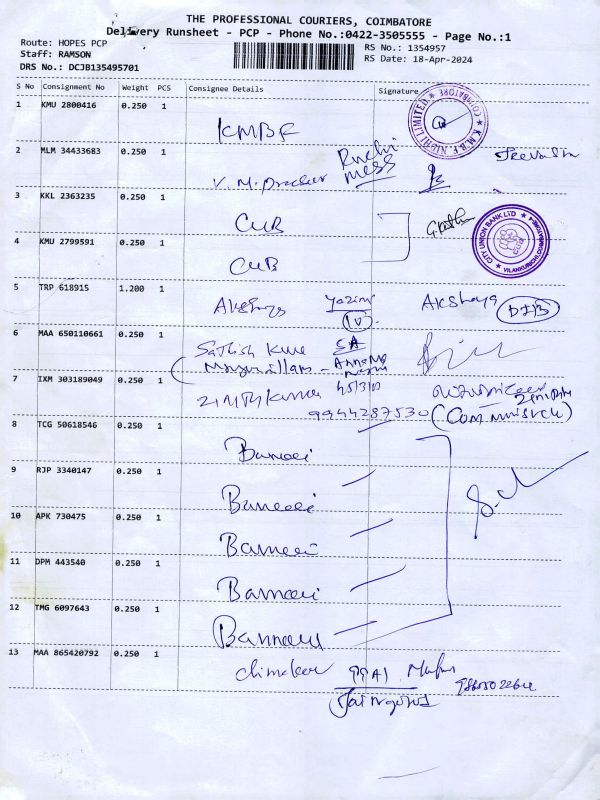 THE PROFESSIONAL COURIERS, COIMBATORE
Delivery Runsheet - PCP - Phone No.:0422-3505555 - Page No.:1
Route: HOPES PCP
Staff: RAMSON
DRS No.: DCJB135495701
RS No.: 1354957
RS Date: 18-Apr-2024
S No Consignment No Weight PCS Consignee Details Signature
1 KMU 2800416 0.250 1
KMBF
K.M.B.F. NIDHI LIMITED * COIMBATORE *
2 MLM 34433683 0.250 1
Ruchi
mess
V. M.
3 KKL 2363235 0.250 1
CUB
CITY UNION BANK LTD
CUB
4 KMU 2799591 0.250 1
CUB
5 TRP 618915 1.200 1
Akshaya Akshaya
IV
6 MAA 650110661 0.250 1
Sathish
7 IXM 303189049 0.250 1
9944287530
8 TCG 50618546 0.250 1
Bannari
9 RJP 3340147 0.250 1
Bannari
10 APK 730475 0.250 1
Bannari
11 DPM 443540 0.250 1
Bannari
12 TMG 6097643 0.250 1
Bannari
13 MAA 865420792 0.250 1